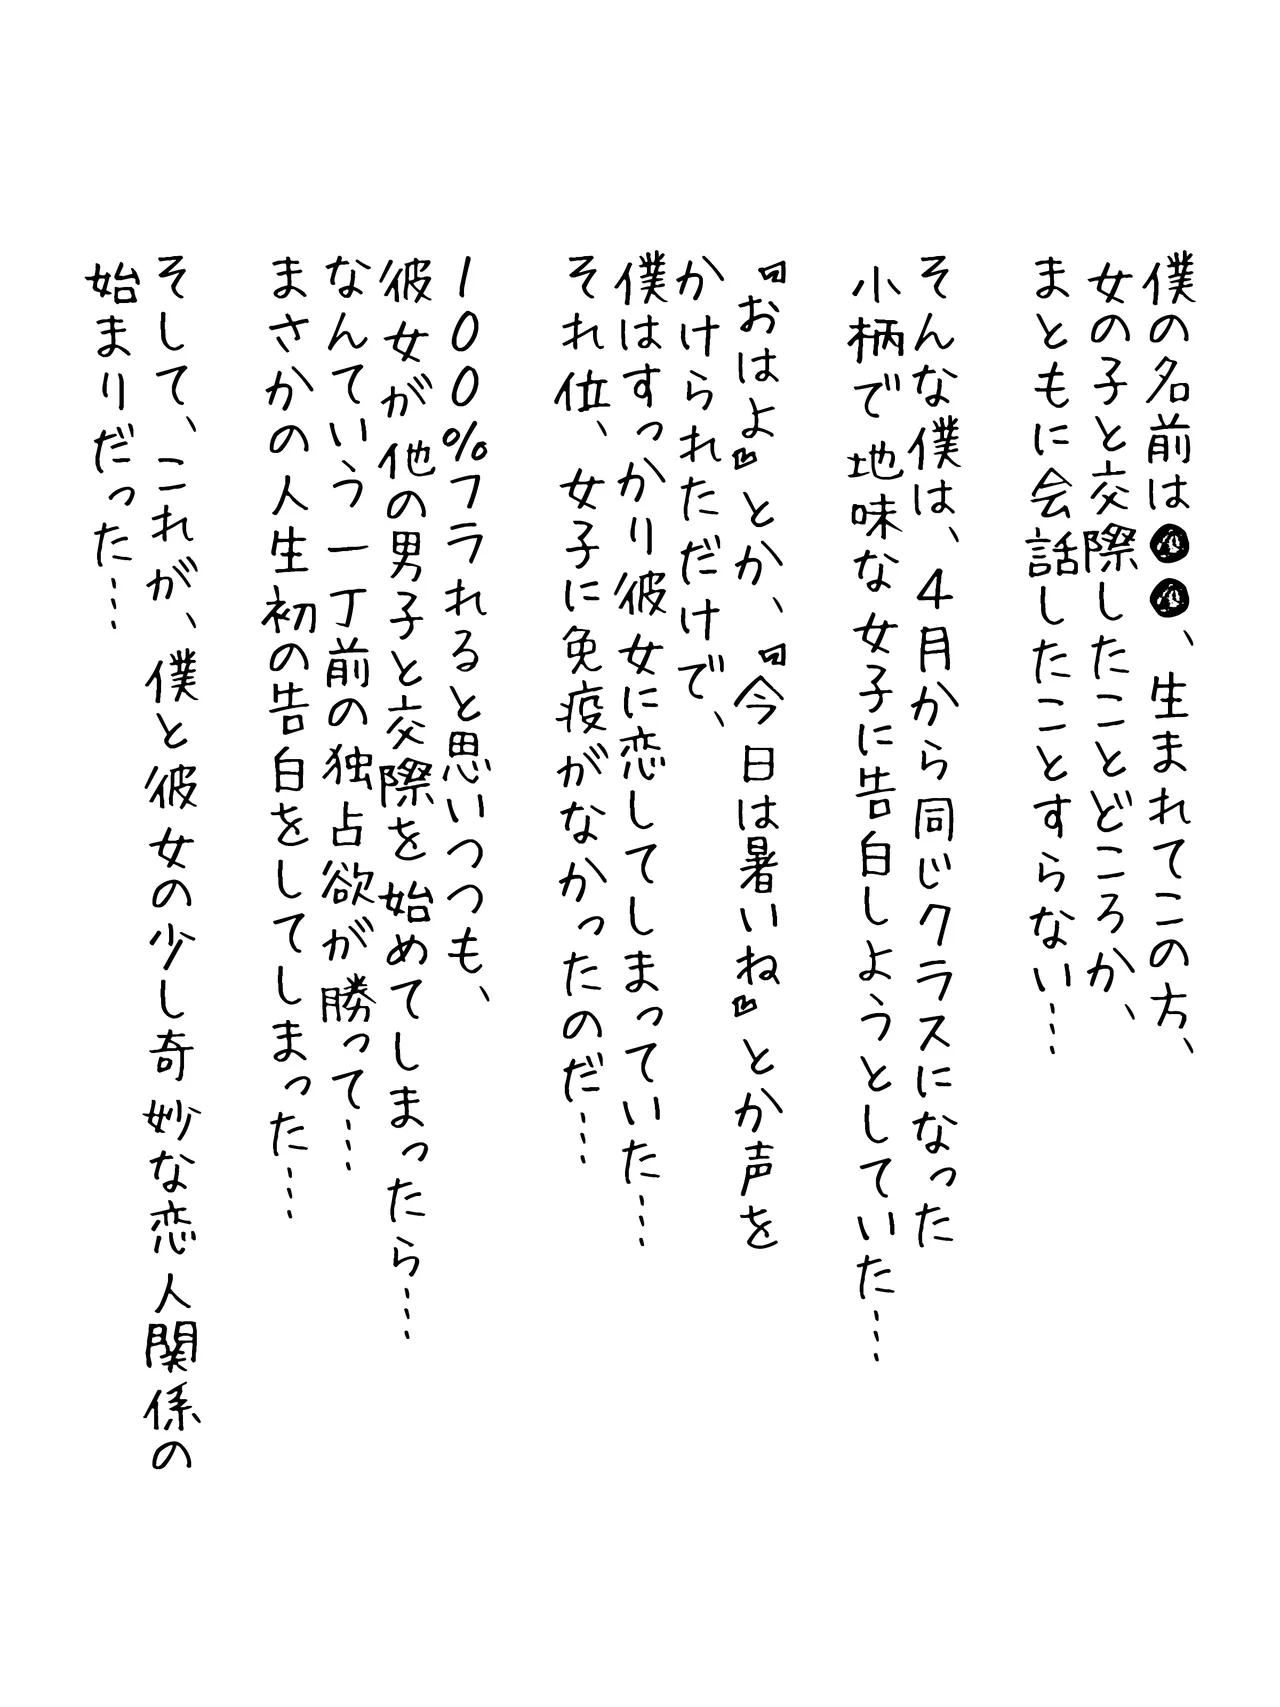 僕の名前は●●、生まれてこの方、
女の子と交際したことどころか、
まともに会話したことすらない…
そんな僕は、4月から同じクラスになった
小柄で地味な女子に告白しようとしていた…
『おはよ』とか、『今日は暑いね』とか声を
かけられただけで、
僕はすっかり彼女に恋してしまっていた…
それ位、女子に免疫がなかったのだ…
100%フラれると思いつつも、
彼女が他の男子と交際を始めてしまったら…
なんていう一丁前の独占欲が勝って…
まさかの人生初の告白をしてしまった…
そして、これが、僕と彼女の少し奇妙な恋人関係の
始まりだった…